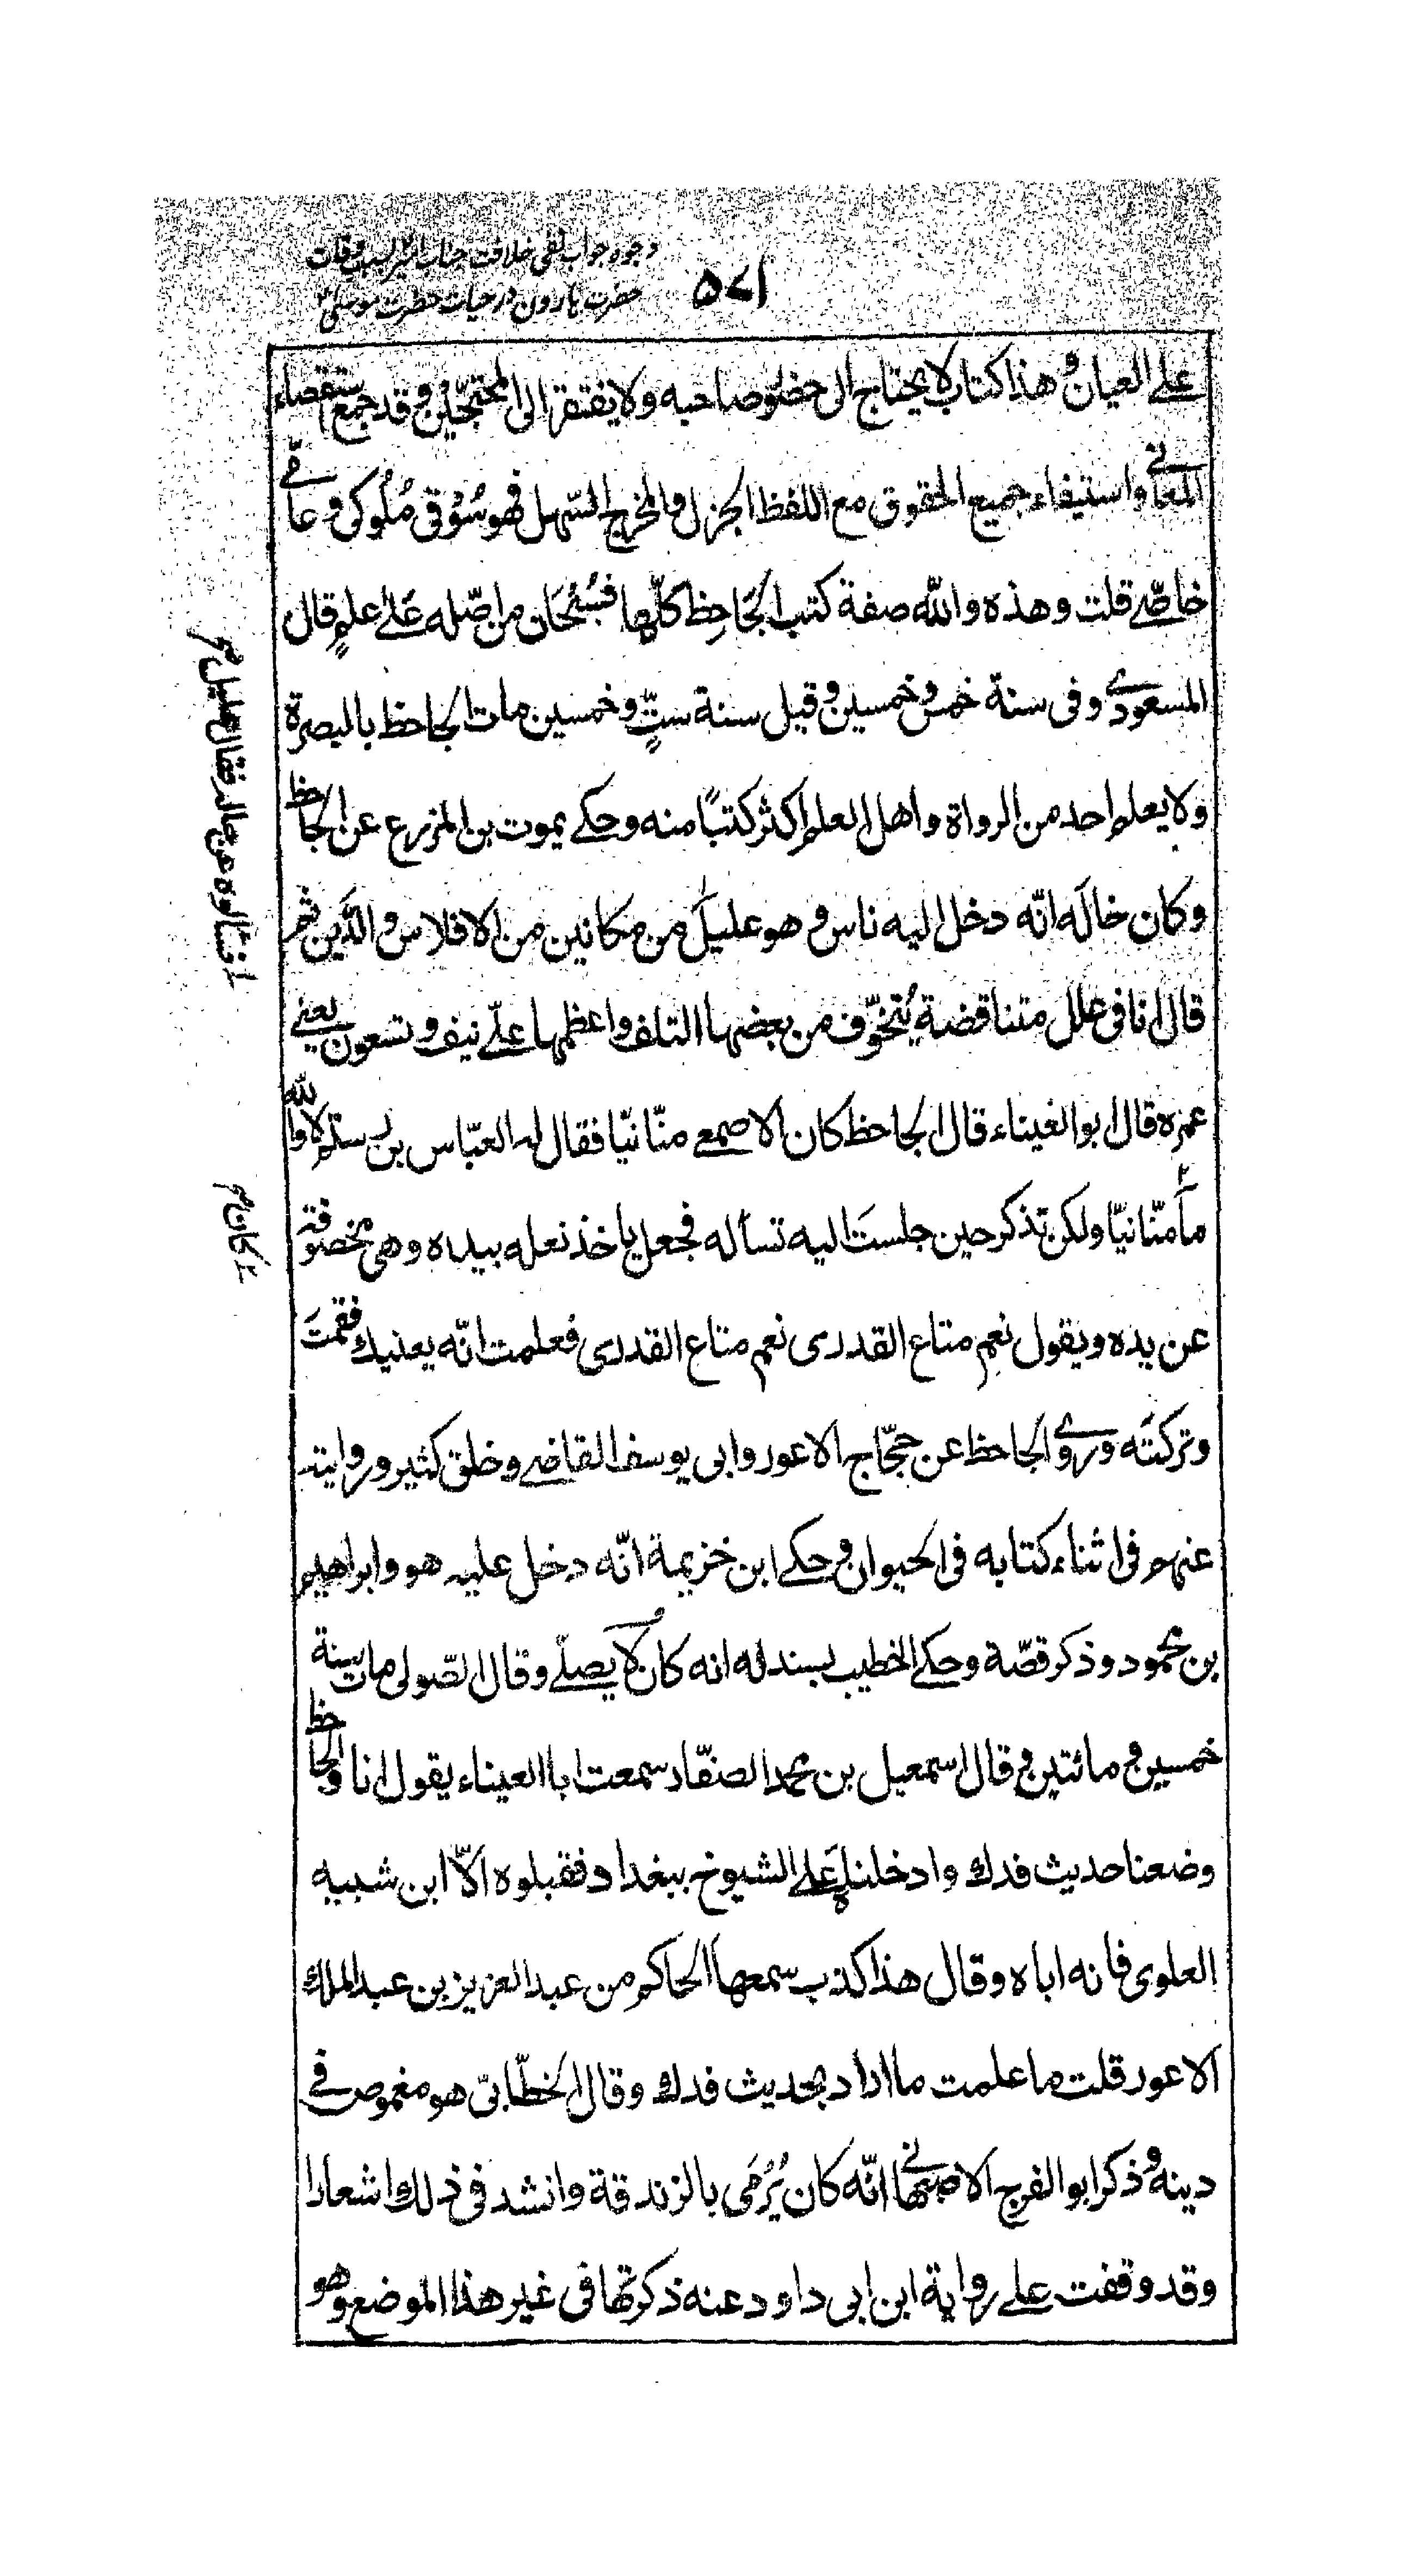 وجوه جواب نفی خلافت جناب امیر بسبب وفات
حضرت هارون در حیات حضرت موسیٰ
۵۷۱
علے العیان و هذا کتاب لا یحتاج الی حضور صاحبه ولا یفتقر الی المحتجین و قد جمع استقصاء
المعانے واستیفاء جمیع الحقوق مع اللفظ الجزل والمخرج السّهل فهو سُوْقی مُلُوکی وعامّے
خاصّے قلت وهذه والله صفة کتب الجَاحِظ کلّها فسُبْحَان من اضّله عَلےٰ علمٍ قال
المسعودے وفی سنة خمس وخمسین وقیل سنة ستٍّ وخمسین مات الجاحظ بالبصرة
ولا یعلم احد من الرواة واهل العلم اکثر کتبًا منه وحکے یموت بن المزرع عن الجاحظ
وکان خالَه انّه دخل الیه ناس و هو علیل من مکانین من الافلاس والدَّین ثم
قال انا فی علل متناقضة یُتخوّف من بعضها التلف واعظمها علَّے نیف وتسعون یعنے
عمره قال ابو العیناء قال الجاحظ کان الاصمعے منّانیّا فقال له العبّاس بن رستم لا والله
ما منّانیّا ولکن تذکر حین جلستَ الیه تسأله فجعل یاخذ نعله بیده وهی مخصوفة
عن یده ویقول نعم متاع القدری نعم متاع القدری فعلمت انّه یعنیك فقمتَ
وترکتَه وروے الجاحظ عن حجّاج الاعور وابی یوسف القاضے وخلق کثیر وروایته
عنهم فی اثناء کتابه فی الحیوان وحکے ابن خزیمة انّه دخل علیه هو وابراهیم
بن محمود وذکر قصّة وحکے الخطیب بسند له انه کان لا یصلّے وقال الصّولی مات سنة
خمسین و مائتین و قال اسمعیل بن محمد الصفّار سمعت ابا العیناء یقول انا والجاحظ
وضعنا حدیث فدك وادخلناه عَلے الشیوخ ببغداد فقبلوه الّا ابن شیبه
العلوی فانه اباه وقال هذا کذب سمعها الحاکم من عبد العزیز بن عبد الملك
الاعور قلت ما علمت ما اراد بحدیث فدك وقال الخطّابیّ هو مغموص فے
دینه و ذکر ابو الفرج الاصبهانے انّه کان یُرْمَی بالزندقة وانشد فی ذلك اشعارا
وقد وقفت علے روایة ابن ابی داود عنه ذکرتها فی غیر هذا الموضع وهو
کان م